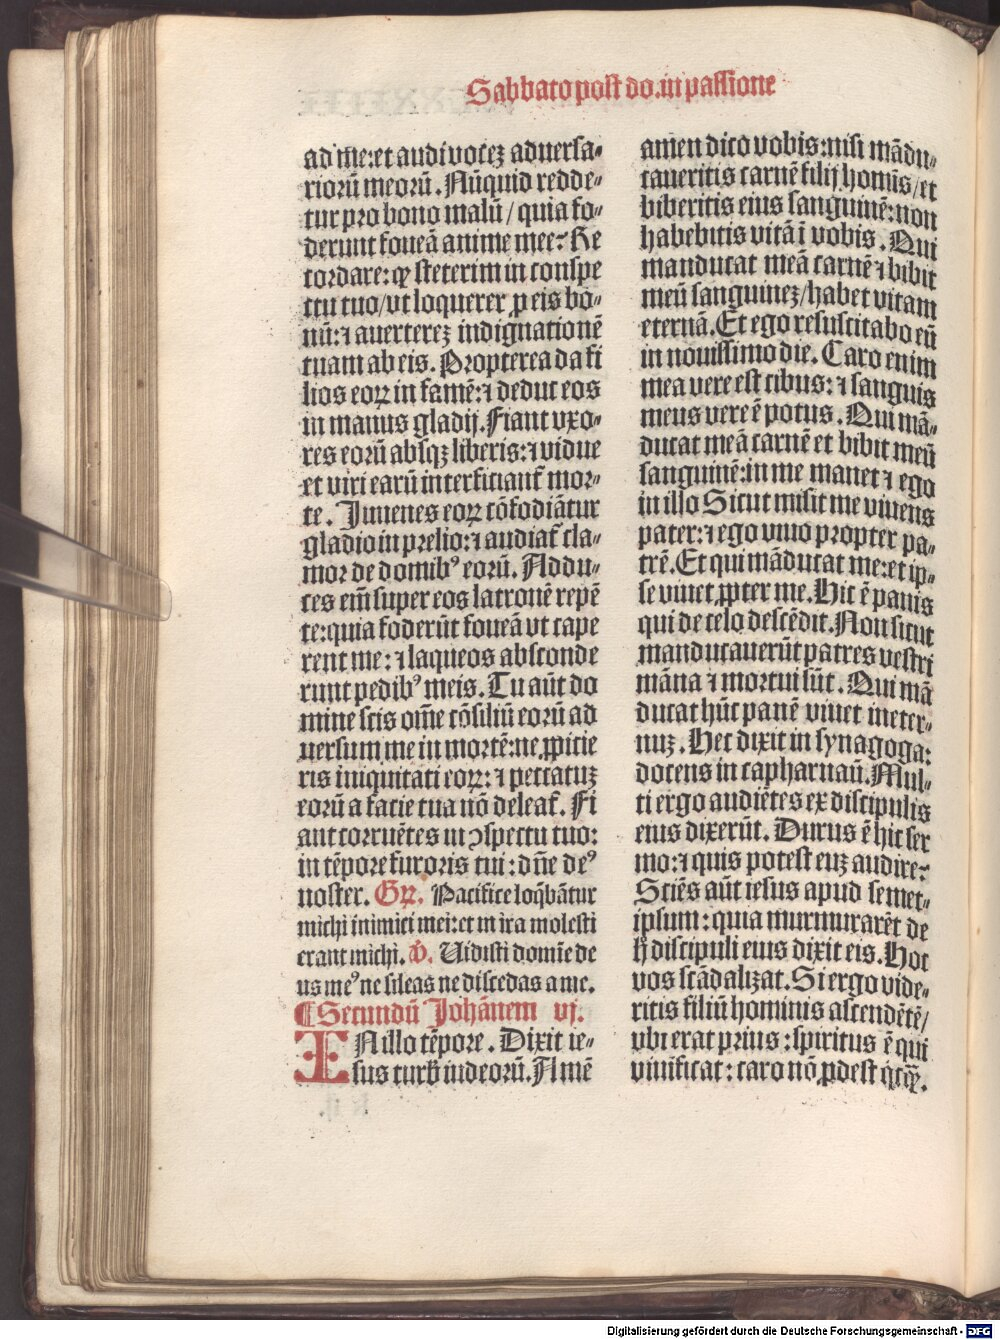 Sabbato post do. in passione
ad me: et audi vocez aduersa-
rioru̅ meoru̅. Nu̅quid redde-
tur pro bono malu̅ / quia fo-
derunt fouea̅ anime mee? Re
cordare: ꝙ steterim in conspe
ctu tuo / vt loquerer ꝓ eis bo-
nu̅: ⁊ auerterez indignatione̅
tuam ab eis. Propterea da fi
lios eoꝝ in fame̅: ⁊ deduc eos
in manus gladij. Fiant vxo-
res eoru̅ absqꝫ liberis: ⁊ vidue
et viri earu̅ interficiant᷑ mor-
te. Juuenes eoꝝ co̅fodia̅tur
gladio in prelio: ⁊ audiat᷑ cla-
mor de domibꝰ eoru̅. Addu-
ces em̅ super eos latrone̅ repe̅
te: quia foderu̅t fouea̅ vt cape
rent me: ⁊ laqueos absconde
runt pedibꝰ meis. Tu au̅t do
mine scis om̅e co̅siliu̅ eoru̅ ad
uersum me in morte̅: ne ꝓpicie
ris iniquitati eoꝝ: ⁊ peccatuz
eoru̅ a facie tua no̅ deleat᷑. Fi
ant corrue̅tes in ꝯspectu tuo:
in te̅pore furoris tui: dn̅e deꝰ
noster. Gꝝ. Pacifice loq̅ba̅tur
michi inimici mei: et in ira molesti
erant michi. v̅. Uidisti domi̅e de
us meꝰ ne sileas ne discedas a me.
¶ Secundu̅ Joha̅nem vj.
IN illo te̅pore. Dixit ie-
sus turb̅ iudeoru̅. Ame̅
amen dico vobis: nisi ma̅du-
caueritis carne̅ filij homi̅s / et
biberitis eius sanguine̅: non
habebitis vita̅ i̅ vobis. Qui
manducat mea̅ carne̅ ⁊ bibit
meu̅ sanguinez / habet vitam
eterna̅. Et ego resuscitabo eu̅
in nouissimo die. Caro enim
mea vere est cibus: ⁊ sanguis
meus vere e̅ potus. Qui ma̅-
ducat mea̅ carne̅ et bibit meu̅
sanguine̅: in me manet ⁊ ego
in illo Sicut misit me viuens
pater: ⁊ ego viuo propter pa-
tre̅. Et qui ma̅ducat me: et ip-
se viuet ꝓpter me. Hic e̅ panis
qui de celo desce̅dit. Non sicut
manducaueru̅t patres vestri
ma̅na ⁊ mortui su̅t. Qui ma̅
ducat hu̅c pane̅ viuet in eter-
nuz. Hec dixit in synagoga:
docens in capharnau̅. Mul-
ti ergo audie̅tes ex discipulis
eius dixeru̅t. Durus e̅ hic ser
mo: ⁊ quis potest euz audire?
Scie̅s au̅t iesus apud semet-
ipsum: quia murmurare̅t de
h̅ discipuli eius dixit eis. Hoc
vos sca̅dalizat. Si ergo vide-
ritis filiu̅ hominis ascende̅te̅ /
vbi erat prius: spiritus e̅ qui
viuificat: caro no̅ ꝓdest q̅cꝙ̅.
Digitalisierung gefördert durch die Deutsche Forschungsgemeinschaft - DFG